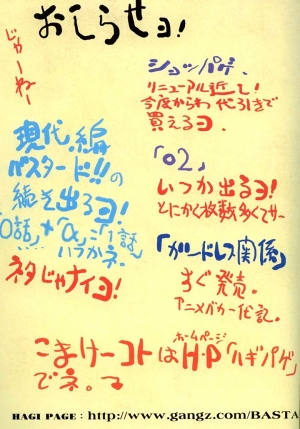 おしらせヨ!
じゃーねー
ショッパゲ.
リニューアル近し!
今度からわ代引きで
買えるヨ.
現代.編
バスタード!!の
続きを出るヨ!
「0話」+「α」=「1話」
いつかネ.
ネタじゃナイヨ!
「02」
いつか出るヨ!
とにかく枚数多くてサー
「ガードレス関係」
すぐ発売。
アニメバカ一代記。
こまけーコトはH・P「ハギパゲ」
ホームページ
でネ。
HAGI PAGE : http://www.gangz.com/BASTA